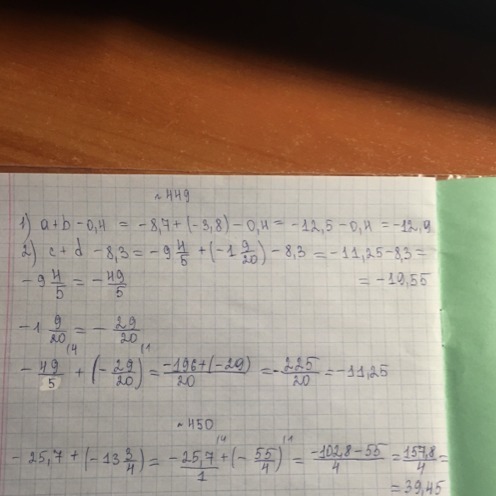 №449
1) a+b-0,4 = -8,7+(-3,8)-0,4= -12,5-0,4=-12,9
2) c+d -8,3= -9 4/5 +(-1 9/20)-8,3 =-11,25-8,3=
-9 4/5 = -49/5 = -19,55
-1 9/20 = -29/20
-49/5 /4 + (-29/20) /1 = -196+(-29)/20 = -225/20 =-11,25
№450
-25,7+(-13 3/4)= -25,7/1 /4 +(-55/4) /1 = -102,8-55/4 = 157,8/4 =
= 39,45